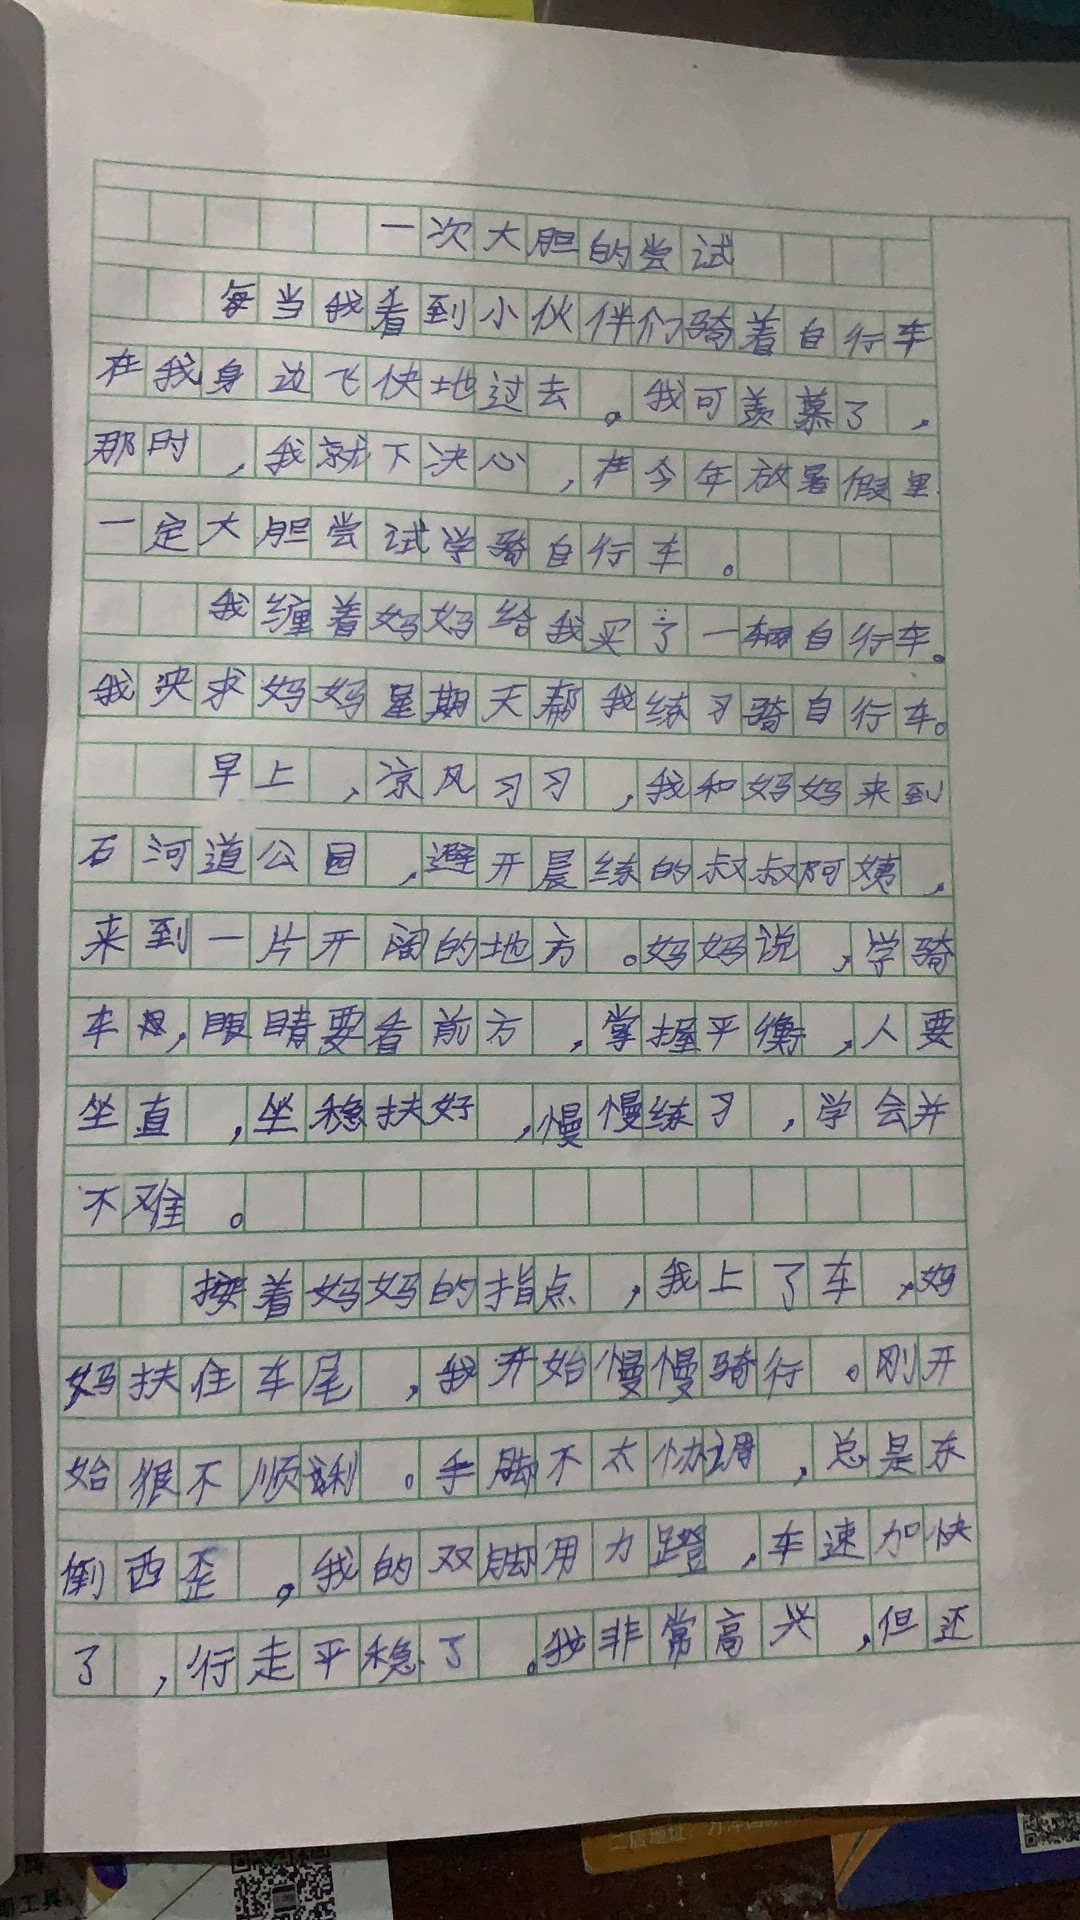 一次大胆的尝试
每当我看到小伙伴们骑着自行车
在我身边飞快地过去。我可羡慕了，
那时，我就下决心，在今年放暑假里
一定大胆尝试学骑自行车。
我缠着妈妈给我买了一辆自行车。
我央求妈妈星期天帮我练习骑自行车。
早上，凉风习习，我和妈妈来到
石河道公园，避开晨练的叔叔阿姨，
来到一片开阔的地方。妈妈说，学骑
车，眼睛要看前方，掌握平衡，人要
坐直，坐稳扶好，慢慢练习，学会并
不难。
按着妈妈的指点，我上了车，妈
妈扶住车尾，我开始慢慢骑行。刚开
始很不顺利。手脚不太协调，总是东
倒西歪。我的双脚用力蹬，车速加快
了，行走平稳了。我非常高兴，但还
二店地址：
工具